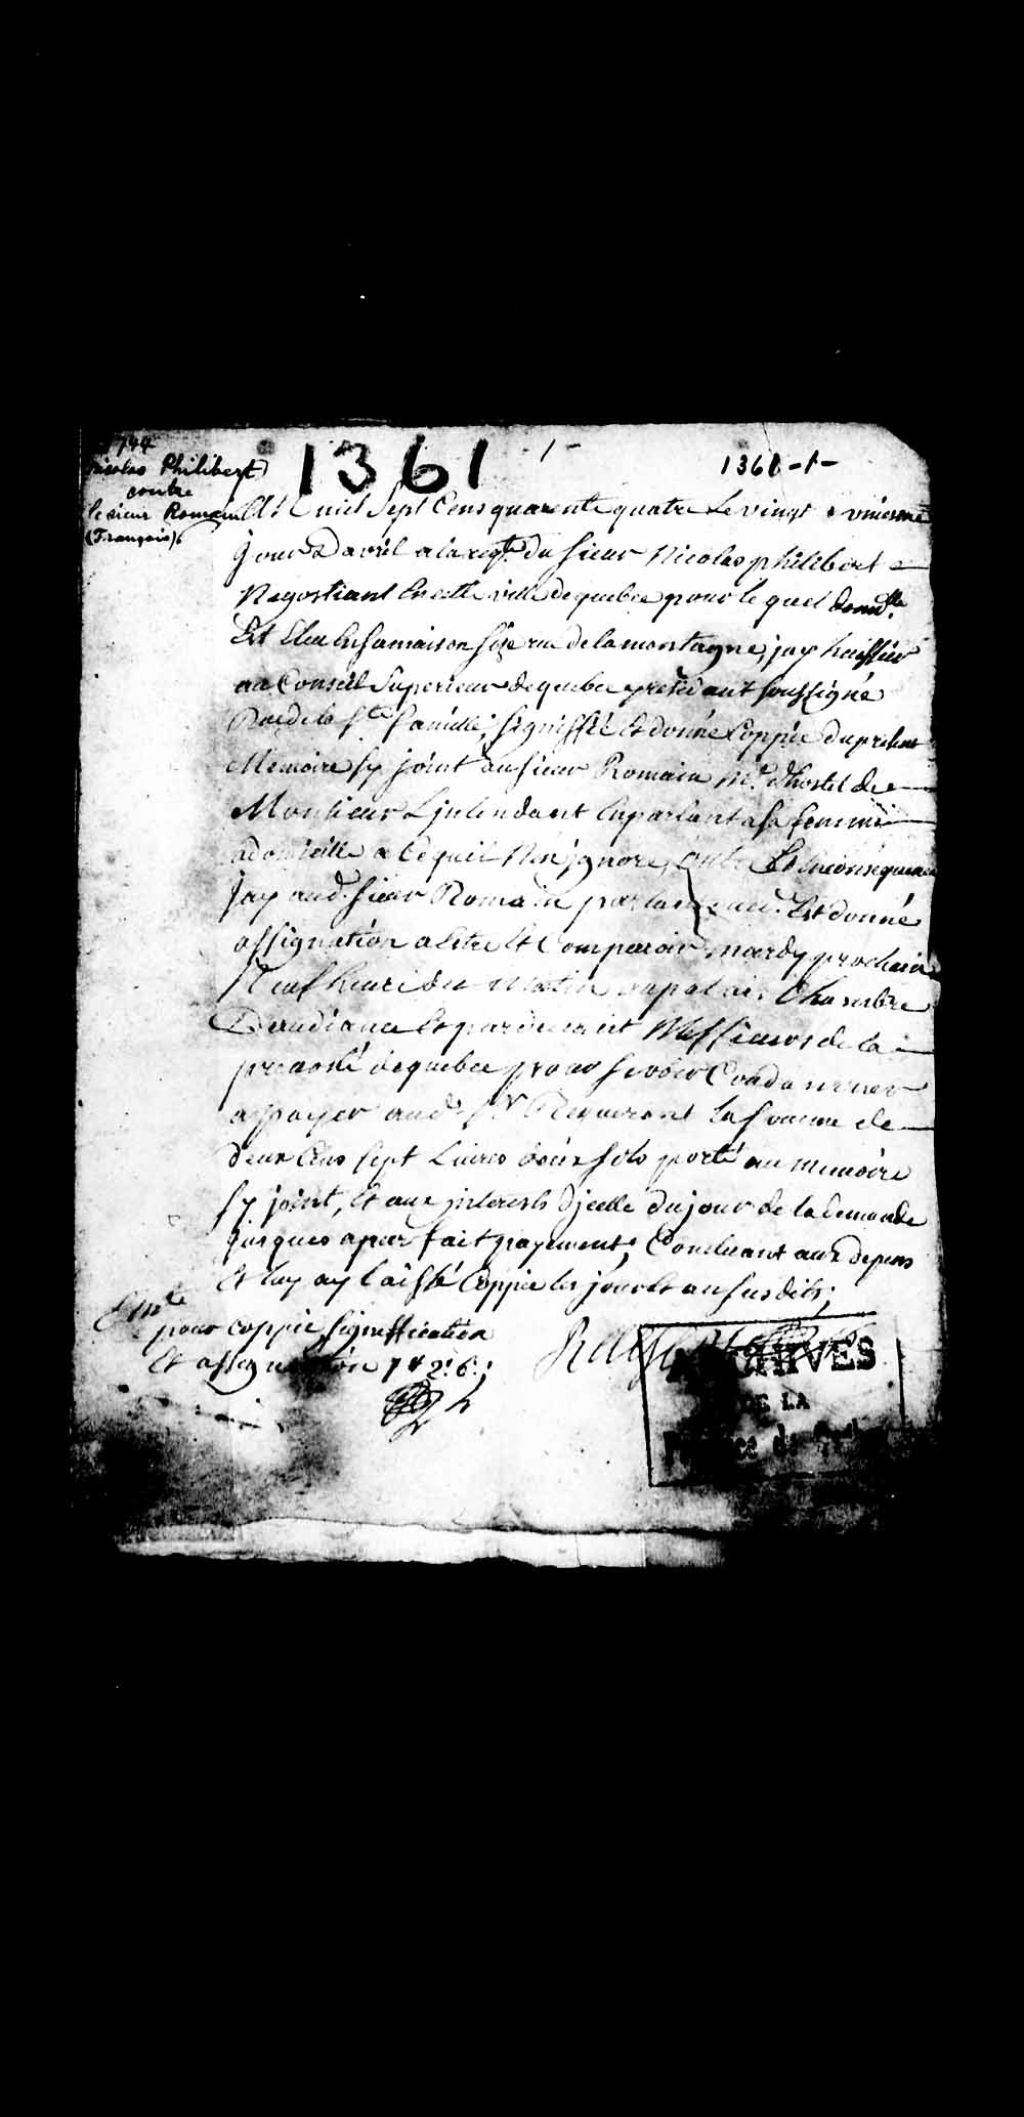 1744
Nicolas Philibert
contre
le sieur Romain
(François)
1361
1361-1-
mil sept Cens quarente quatre Le vingt
jour Davril a la reqte du sieur Nicolas philibert
Negostiant En cette ville de quebec pour le quel domlle
Est Eleu En sa maison size rue de la montagne, jay huissier
au Conseil Superieur de quebec residant soussigné
Rue de la Ste famille, signiffié Et donné Coppie du present
Memoire sy joint au sieur Romain Me dhostel de
Monsieur L'jntendant En parlant a sa femme
a domicille a Ce quil Nen jgnore, Et En Consequence
jay aud. sieur Romain parlant Est donné
assignation a Estre Et Comparoir mardy prochain
Neuf heure du matin au palais Chambre
Daudiance Et pardevant Messieurs de la
prevosté de quebec pour se voir Condamner
a payer aud. Sr Requerant la somme de
deux Cens sept Livres sols porté au memoire
sy joint, Et aux jnterests djcelle du jour de la demande
jusques a par fait payement, Concluant aux depens
Et luy ay laissé Coppie les jour Et an susdits;
pour coppie signiffication
Et assignation
ARCHIVES
DE LA